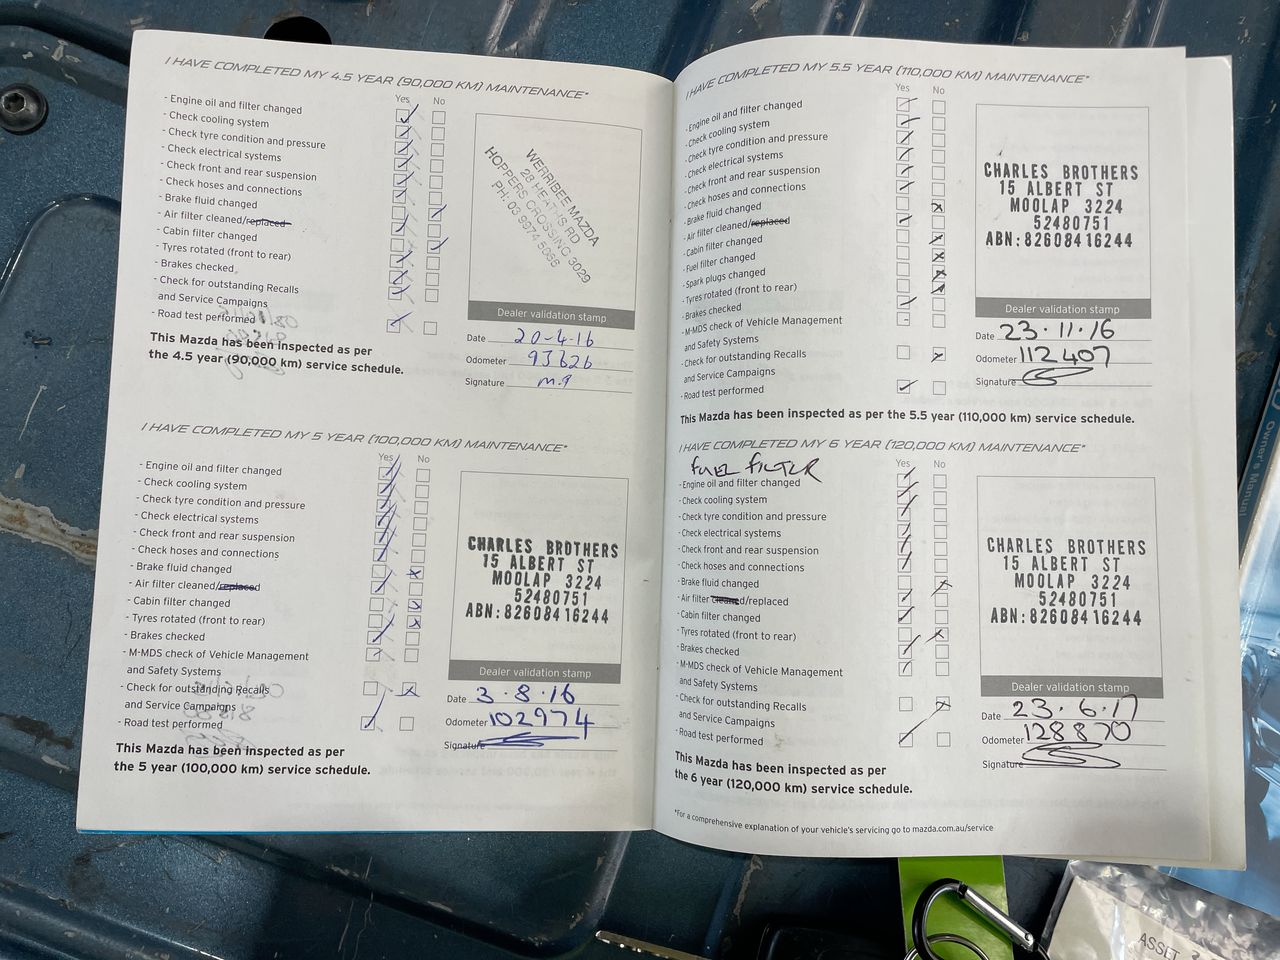 I HAVE COMPLETED MY 4.5 YEAR (90,000 KM) MAINTENANCE*
Yes No
- Engine oil and filter changed
- Check cooling system
- Check tyre condition and pressure
- Check electrical systems
- Check front and rear suspension
- Check hoses and connections
- Brake fluid changed
- Air filter cleaned/replaced
- Cabin filter changed
- Tyres rotated (front to rear)
- Brakes checked
- Check for outstanding Recalls
and Service Campaigns
- Road test performed
This Mazda has been inspected as per
the 4.5 year (90,000 km) service schedule.
WERRIBEE MAZDA
28 HEATHS RD
HOPPERS CROSSING 3029
PH: 03 9974 5066
Dealer validation stamp
Date 20-4-16
Odometer 93626
Signature
I HAVE COMPLETED MY 5 YEAR (100,000 KM) MAINTENANCE*
Yes No
- Engine oil and filter changed
- Check cooling system
- Check tyre condition and pressure
- Check electrical systems
- Check front and rear suspension
- Check hoses and connections
- Brake fluid changed
- Air filter cleaned/replaced
- Cabin filter changed
- Tyres rotated (front to rear)
- Brakes checked
- M-MDS check of Vehicle Management
and Safety Systems
- Check for outstanding Recalls
and Service Campaigns
- Road test performed
This Mazda has been inspected as per
the 5 year (100,000 km) service schedule.
CHARLES BROTHERS
15 ALBERT ST
MOOLAP 3224
52480751
ABN:82608416244
Dealer validation stamp
Date 3.8.16
Odometer 102974
Signature
I HAVE COMPLETED MY 5.5 YEAR (110,000 KM) MAINTENANCE*
Yes No
- Engine oil and filter changed
- Check cooling system
- Check tyre condition and pressure
- Check electrical systems
- Check front and rear suspension
- Check hoses and connections
- Brake fluid changed
- Air filter cleaned/replaced
- Cabin filter changed
- Fuel filter changed
- Spark plugs changed
- Tyres rotated (front to rear)
- Brakes checked
- M-MDS check of Vehicle Management
and Safety Systems
- Check for outstanding Recalls
and Service Campaigns
- Road test performed
This Mazda has been inspected as per the 5.5 year (110,000 km) service schedule.
CHARLES BROTHERS
15 ALBERT ST
MOOLAP 3224
52480751
ABN:82608416244
Dealer validation stamp
Date 23.11.16
Odometer 112407
Signature
I HAVE COMPLETED MY 6 YEAR (120,000 KM) MAINTENANCE*
Yes No
FUEL FILTER
- Engine oil and filter changed
- Check cooling system
- Check tyre condition and pressure
- Check electrical systems
- Check front and rear suspension
- Check hoses and connections
- Brake fluid changed
- Air filter cleaned/replaced
- Cabin filter changed
- Tyres rotated (front to rear)
- Brakes checked
- M-MDS check of Vehicle Management
and Safety Systems
- Check for outstanding Recalls
and Service Campaigns
- Road test performed
This Mazda has been inspected as per
the 6 year (120,000 km) service schedule.
CHARLES BROTHERS
15 ALBERT ST
MOOLAP 3224
52480751
ABN:82608416244
Dealer validation stamp
Date 23.6.17
Odometer 128870
Signature
*For a comprehensive explanation of your vehicle's servicing go to mazda.com.au/service
Owner's Manual
ASSET